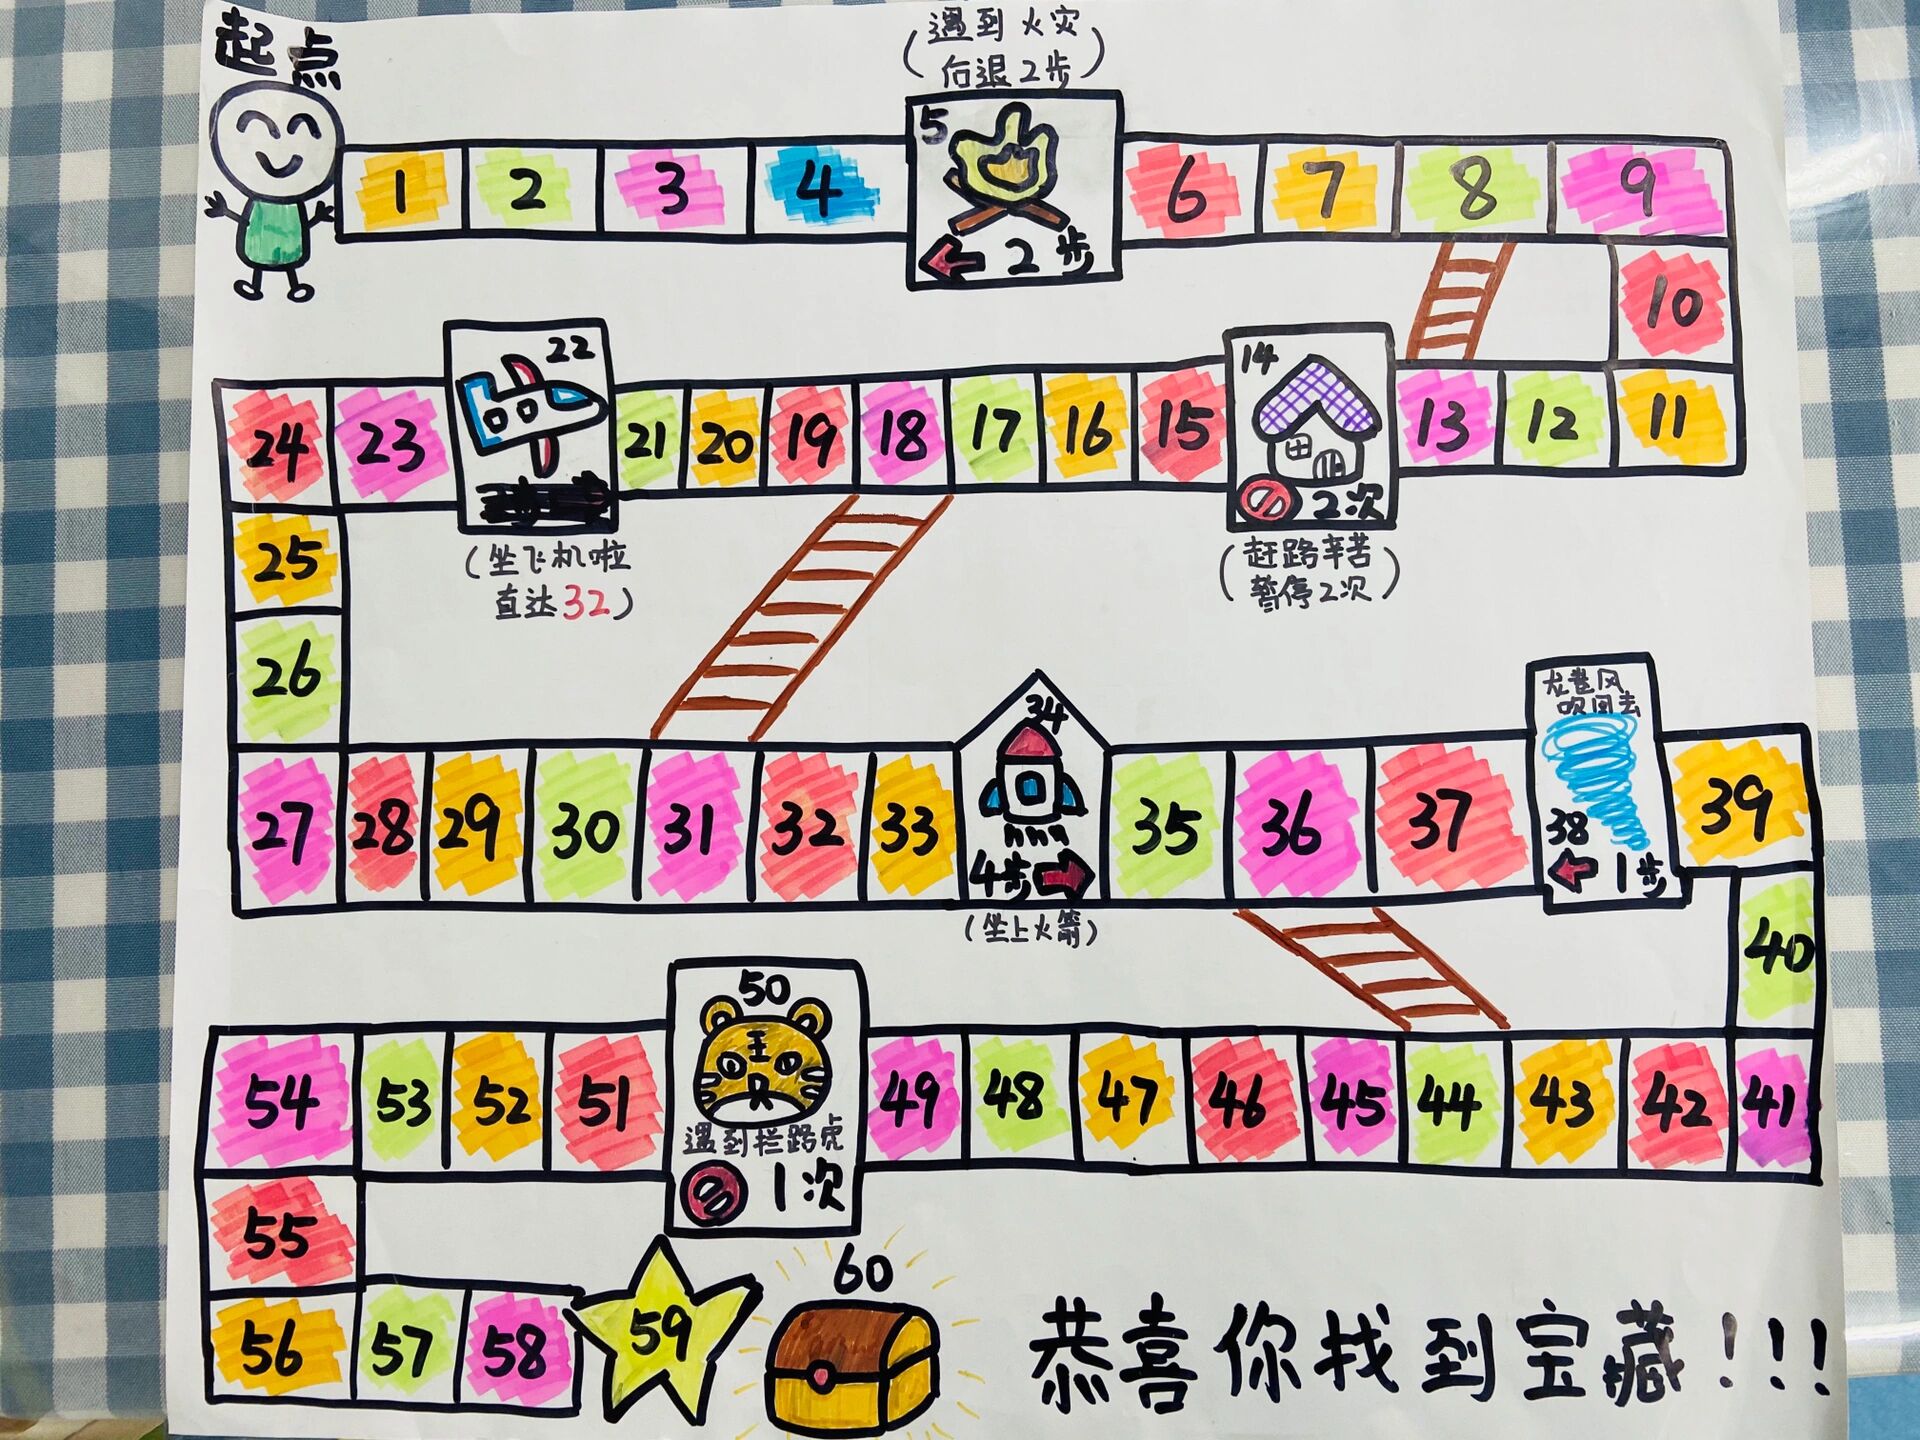 起点
(遇到火灾
后退2步)
1 2 3 4 5 6 7 8 9
←2步
10
24 23 22 21 20 19 18 17 16 15 14 13 12 11
2次
(坐飞机啦
直达32)
(赶路辛苦
暂停2次)
25
26
龙卷风
吹回去
27 28 29 30 31 32 33 34 35 36 37 38 39
4步→
←1步
(坐上火箭)
40
54 53 52 51 50 49 48 47 46 45 44 43 42 41
王
遇到拦路虎
1次
55
56 57 58 59 60
恭喜你找到宝藏!!!